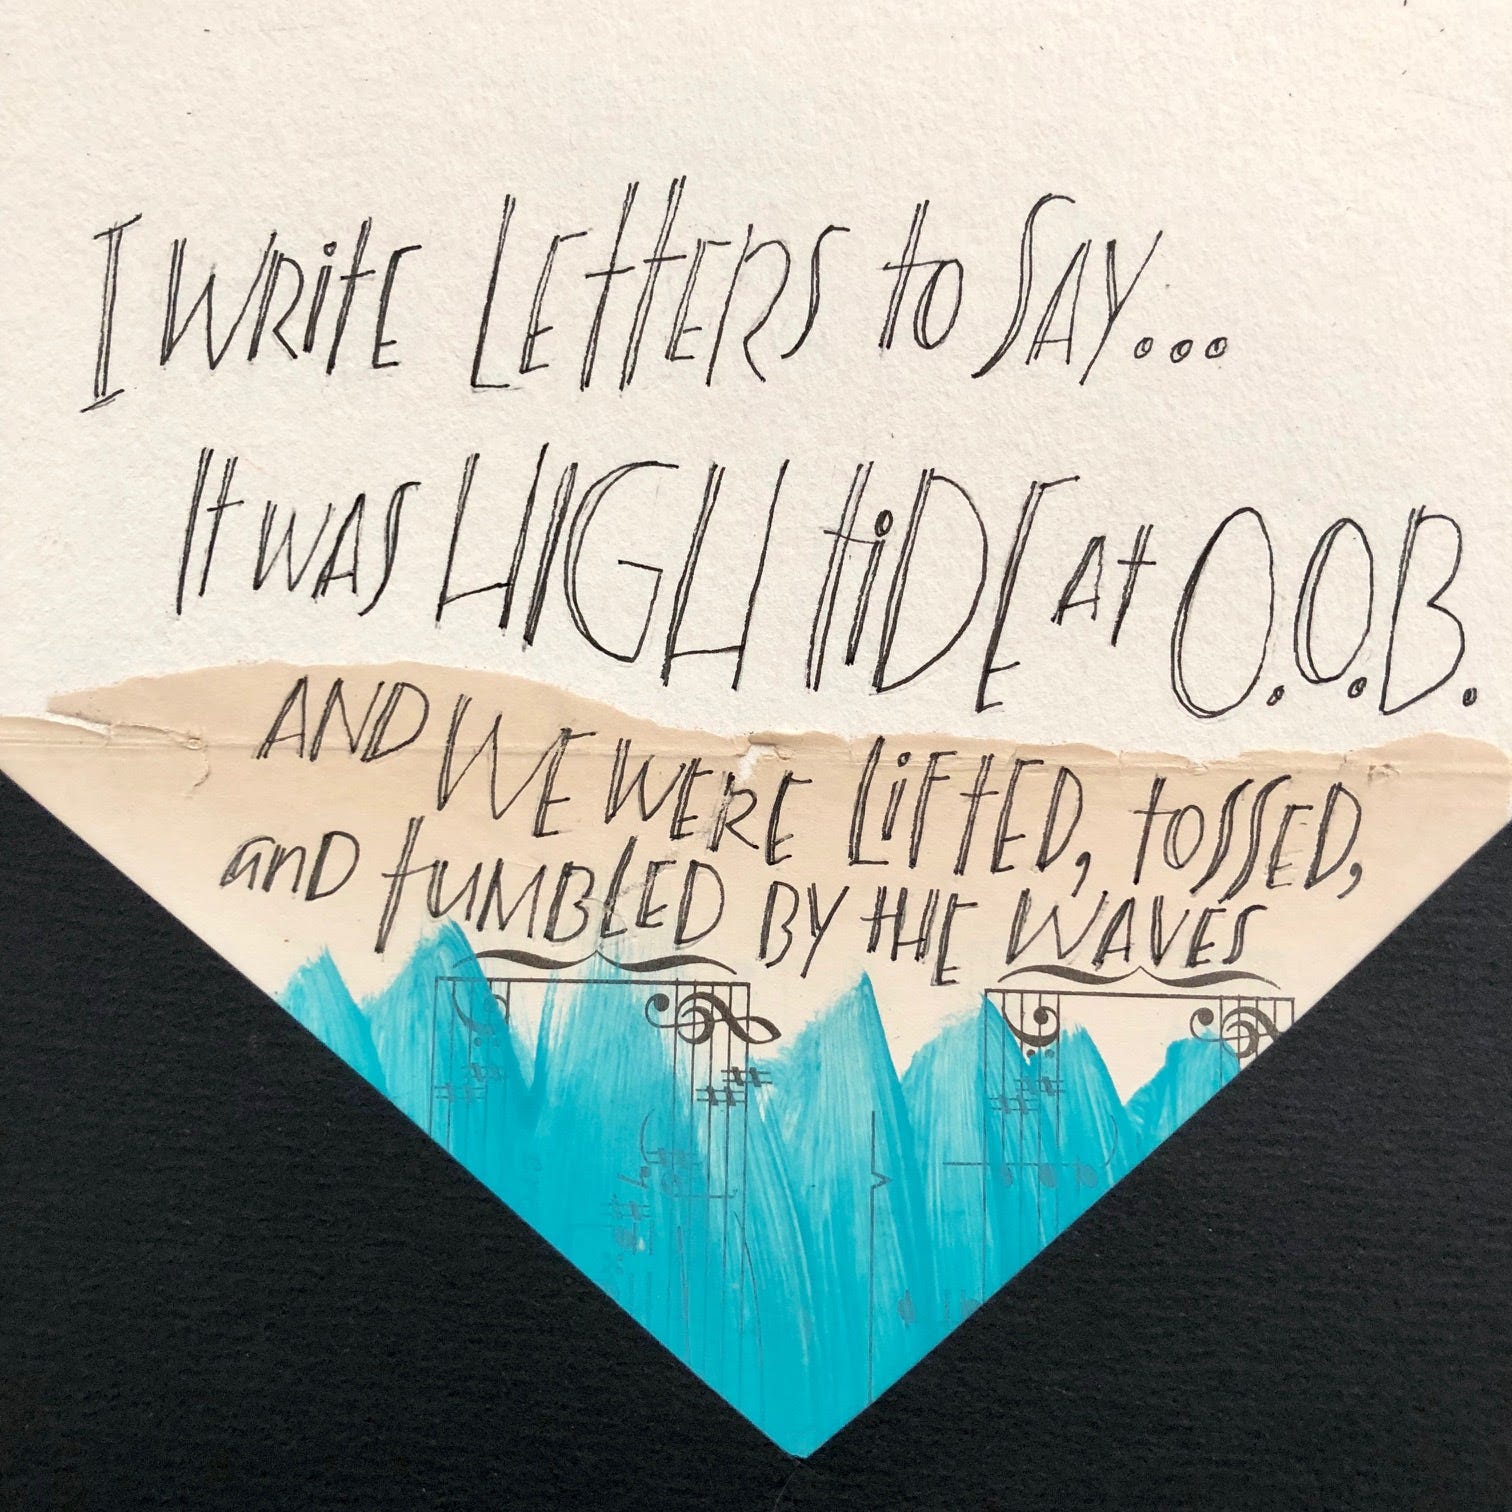 I WRitE LEttERS to SAY...
It WAS HIGH tiDE At O.O.B.
AND WE WERE LiFtED, tOSSED,
anD tUMBLED BY tHE WAVES